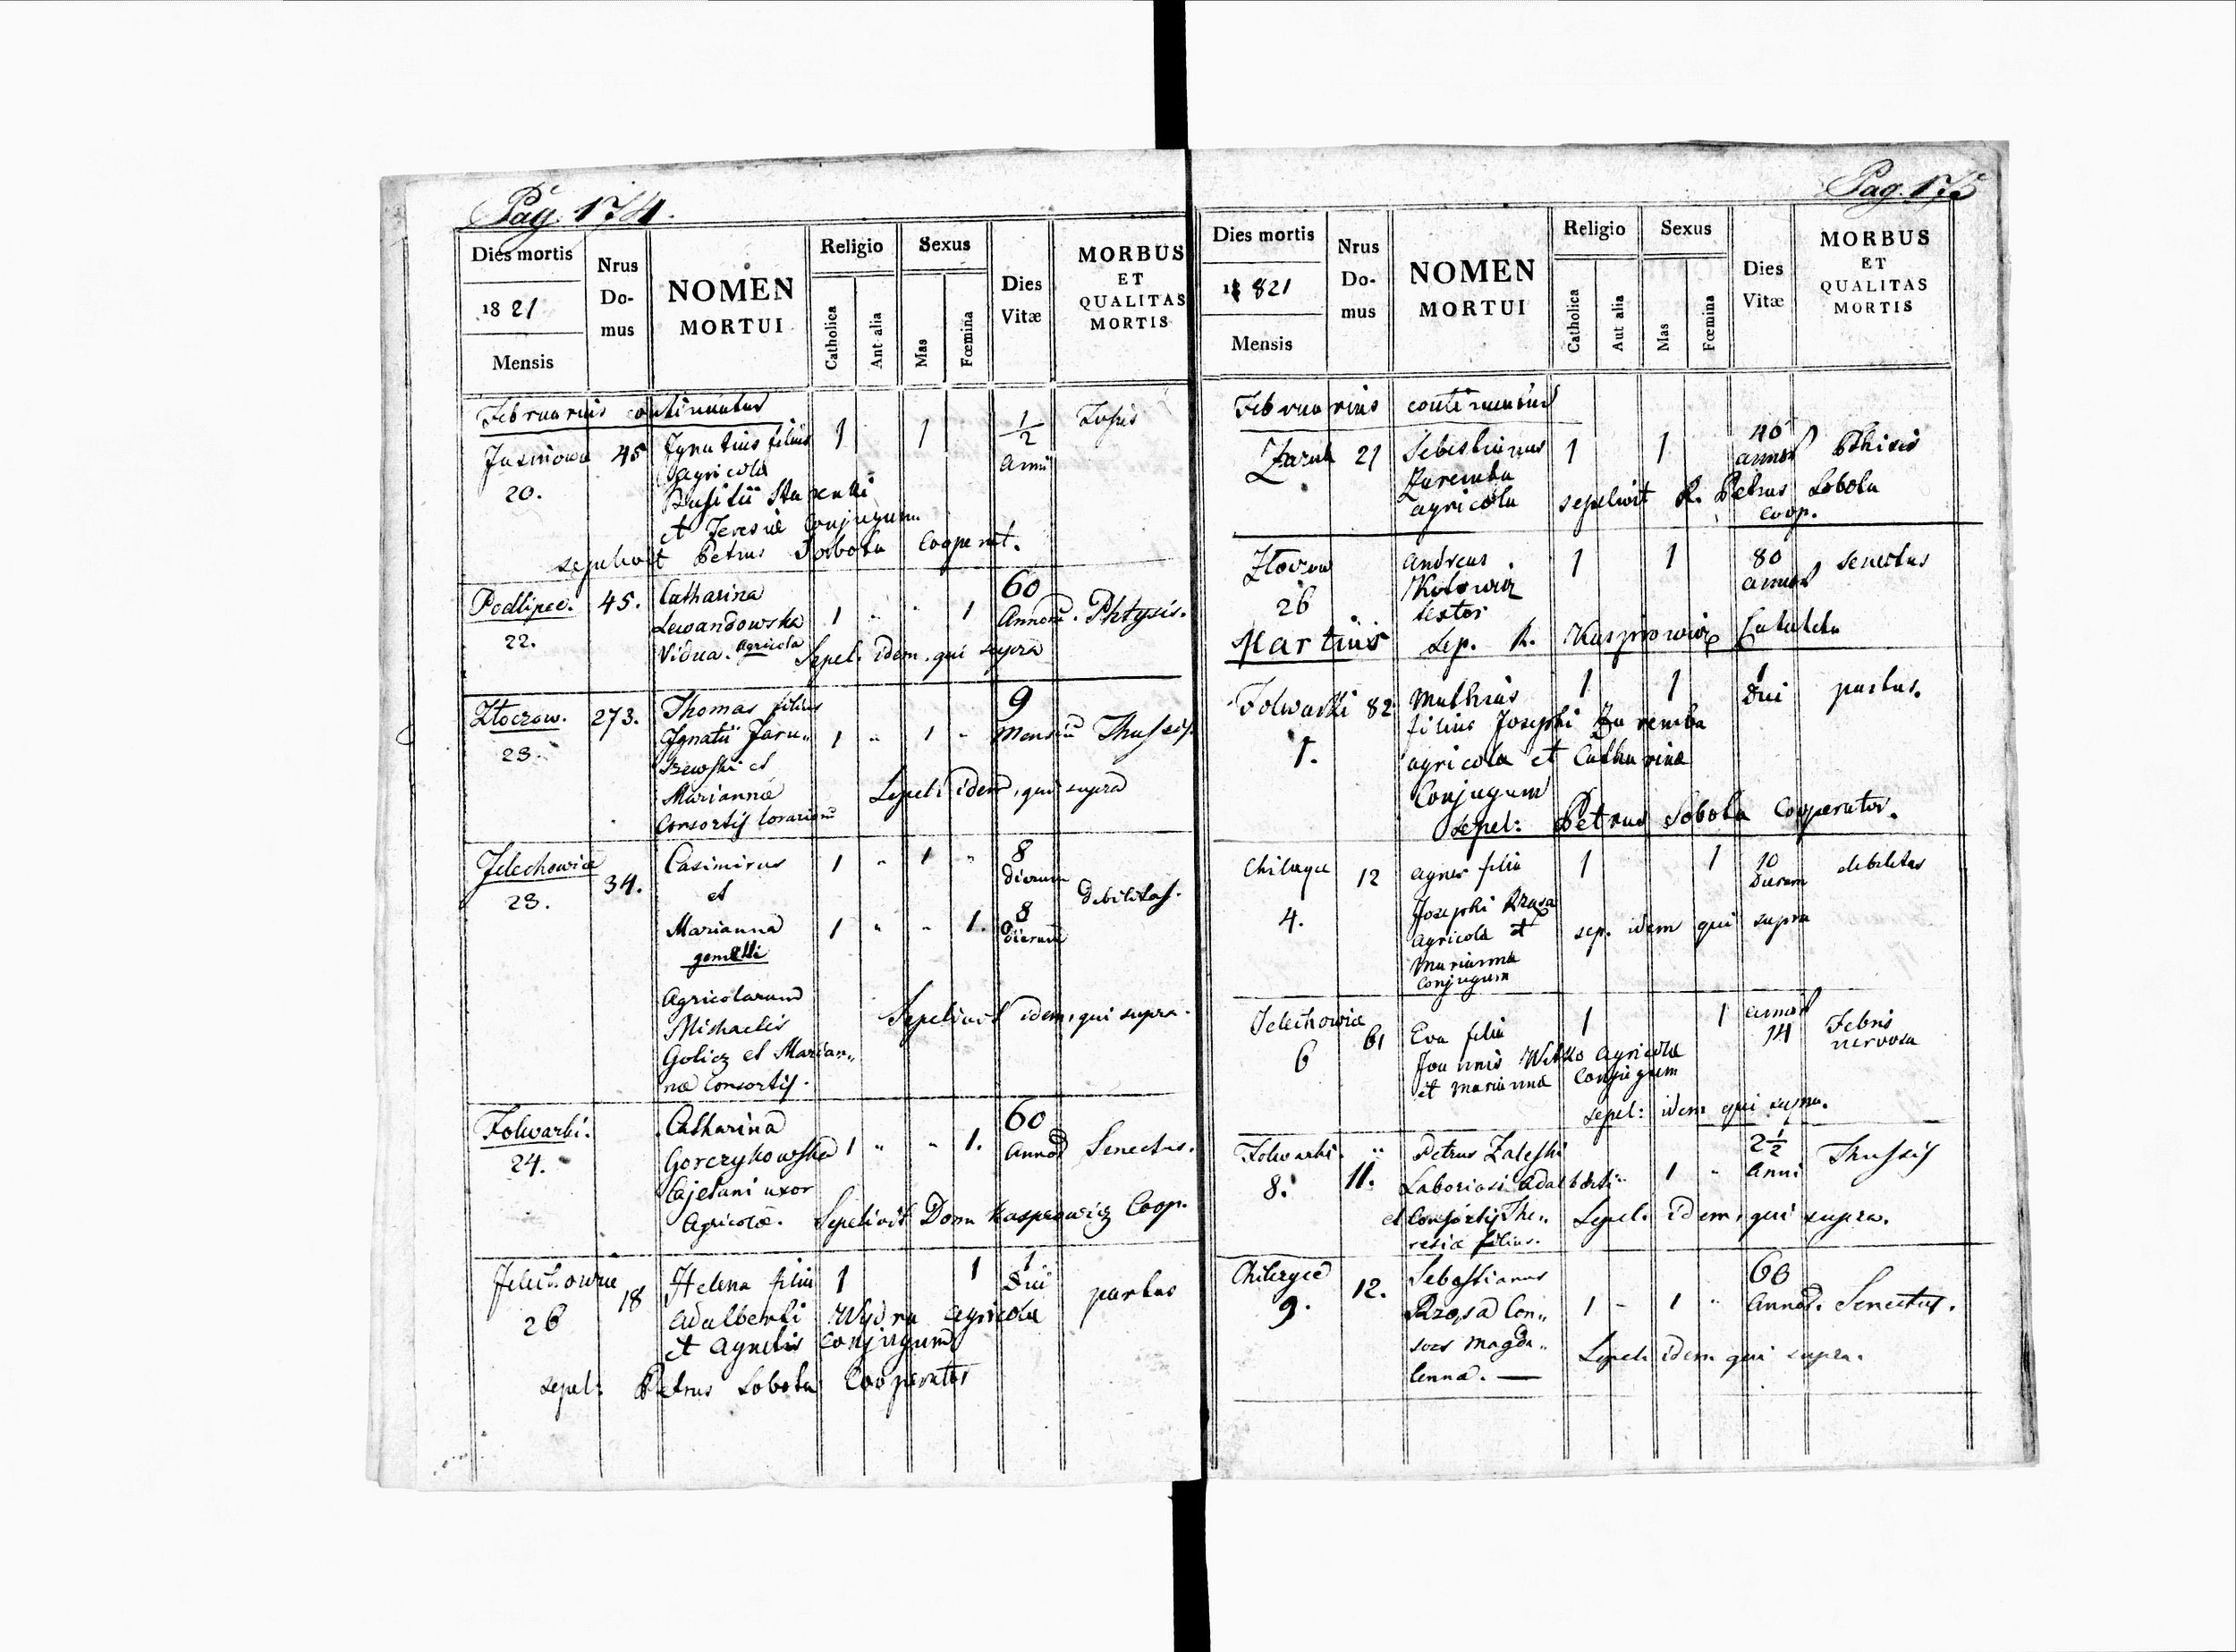 Pag. 174.
Dies mortis
1821
Mensis
Nrus
Do-
mus
NOMEN
MORTUI
Religio
Catholica
Ant alia
Sexus
Mas
Fœmina
Dies
Vitæ
MORBUS
ET
QUALITAS
MORTIS
Februarius continuatus
Jasinowa 45 Ignatius filius 1 1 1/2 Tusis
agricola anni
20.
Basilii
et Teresiæ Conjugum
sepelivit Petrus Sobota Cooperat.
Podlipce. 45. Catharina 60
Lewandowska 1 " " 1 Annorū. Phtysis.
22. Vidua. Agricola Sepel. idem, qui supra
Złoczow. 273. Thomas filius 9
Ignatii Jaru„ 1 " 1 " Mensiū Thussis.
23. szewski et
Marianna Sepel: idem, qui supra
Consortis
Jelechowice 34. Casimirus 1 " 1 " 8
23. et dierum
Debilitas.
Marianna 1 " " 1. 8
dierum
gemelli
Agricolarum
Michaelis Sepelivit idem, qui supra.
Golicz et Marian„
næ Consortis.
Folwarki. Catharina 60
24. Gorczykowska 1 " " 1. Annor Senectus.
Cajetani uxor
Agricolæ. Sepelivit Dom Kasprowicz Coop.
Jelechowice 18 Helena filia 1 1 1
26 Adalberti Wydra agricola Diei partus
et Agnetis conjugum
sepel: Petrus Sobota Cooperator
Pag. 175
Dies mortis
1821
Mensis
Nrus
Do-
mus
NOMEN
MORTUI
Religio
Catholica
Aut alia
Sexus
Mas
Fœmina
Dies
Vitæ
MORBUS
ET
QUALITAS
MORTIS
Februarius continuatus
Zarub 21 Sebestianus 1 1 40 Pthisis
Zaremba annor
agricola sepelivit R. Petrus Sobota
coop.
Złoczow Andreas 1 1 80 senectus
26 annor
textor
Martius Sep. R. Kasprowicz
Folwarki 82 Mathias 1 1 1 partus.
filius Josephi Zaremba Diei
1. agricola et Catharina
Conjugum
sepel: Petrus Sobota Cooperator.
12 Agnes filia 1 1 10 debilitas
Dierum
4. Josephi Rzasa
agricola et sep. idem qui supra
Marianna
Conjugum
Jelechowice 61 Eva filia 1 1 annor Febris
6 Joannis Witko agricola 14 nervosa
et Marianna Conjugum
sepel: idem qui supra.
Folwarki. " Petrus Zaleski 2 1/2
8. 11. Laboriosi Adalberti " 1 " Anni Thussis
et Consortis The„ Sepel. idem, qui supra.
resia filius.
12. Sebastianus 60
9. Rzasa Con„ 1 " 1 " Annor. Senectus.
sors Magda„ Sepel: idem qui supra.
lenna. —